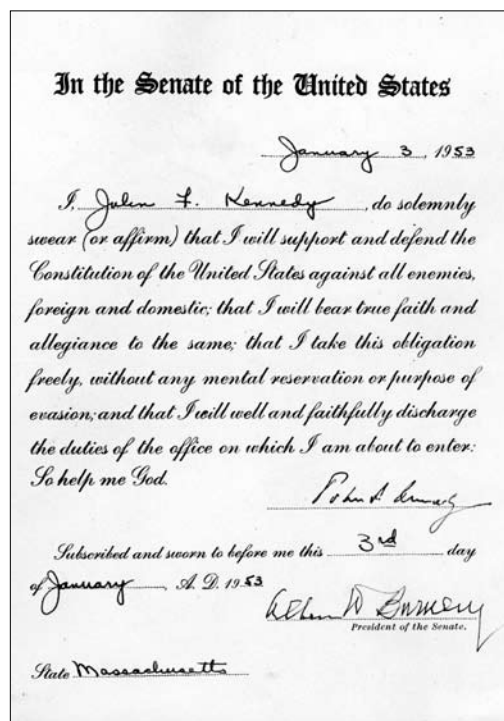 In the Senate of the United States
January 3, 1953
I, John F. Kennedy, do solemnly
swear (or affirm) that I will support and defend the
Constitution of the United States against all enemies,
foreign and domestic; that I will bear true faith and
allegiance to the same; that I take this obligation
freely, without any mental reservation or purpose of
evasion; and that I will well and faithfully discharge
the duties of the office on which I am about to enter:
So help me God.
Subscribed and sworn to before me this 3rd day
of January, A. D. 1953
President of the Senate.
State Massachusetts